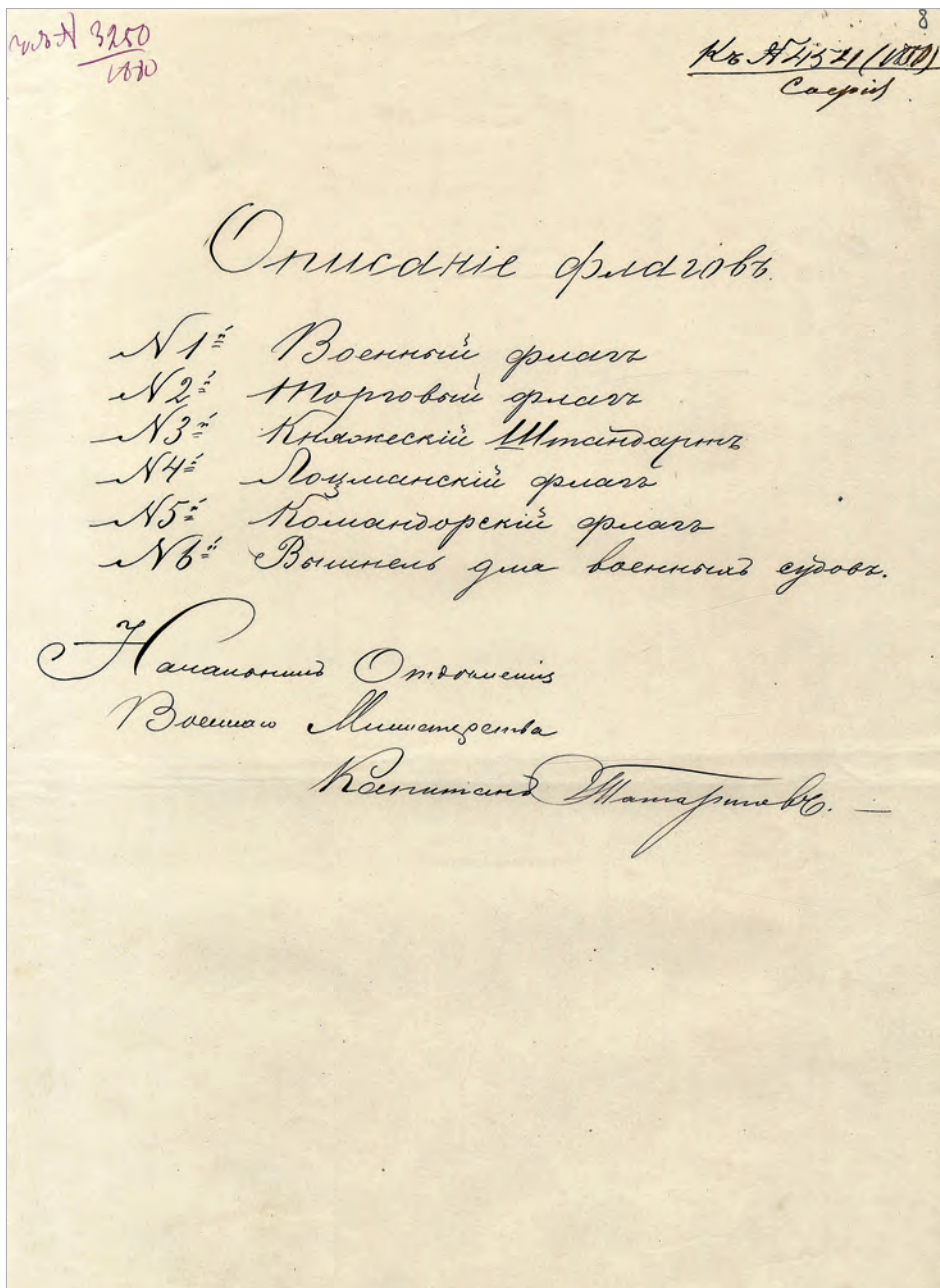 8
3250
1880
Къ № 4154 (1880)
Софія
Описаніе флаговъ.
№ 1й Военный флагъ
№ 2й Торговый флагъ
№ 3й Княжескій Штандартъ
№ 4й Лоцманскій флагъ
№ 5й Командорскій флагъ
№ 6й Вымпель для военныхъ судовъ.
Начальникъ Отдѣленія
Военнаго Министерства
Капитанъ